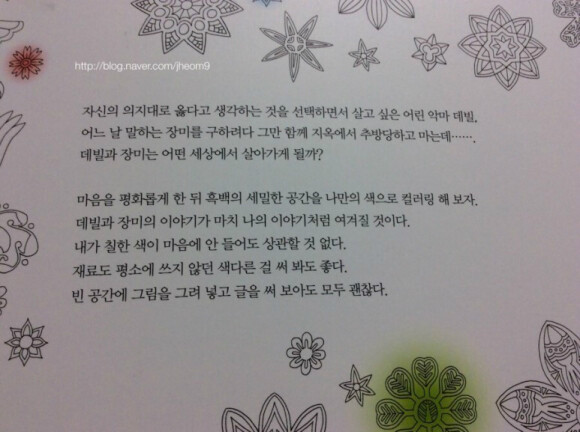 http://blog.naver.com/jheom9
자신의 의지대로 옳다고 생각하는 것을 선택하면서 살고 싶은 어린 악마 데빌.
어느 날 말하는 장미를 구하려다 그만 함께 지옥에서 추방당하고 마는데…….
데빌과 장미는 어떤 세상에서 살아가게 될까?
마음을 평화롭게 한 뒤 흑백의 세밀한 공간을 나만의 색으로 컬러링 해 보자.
데빌과 장미의 이야기가 마치 나의 이야기처럼 여겨질 것이다.
내가 칠한 색이 마음에 안 들어도 상관할 것 없다.
재료도 평소에 쓰지 않던 색다른 걸 써 봐도 좋다.
빈 공간에 그림을 그려 넣고 글을 써 보아도 모두 괜찮다.